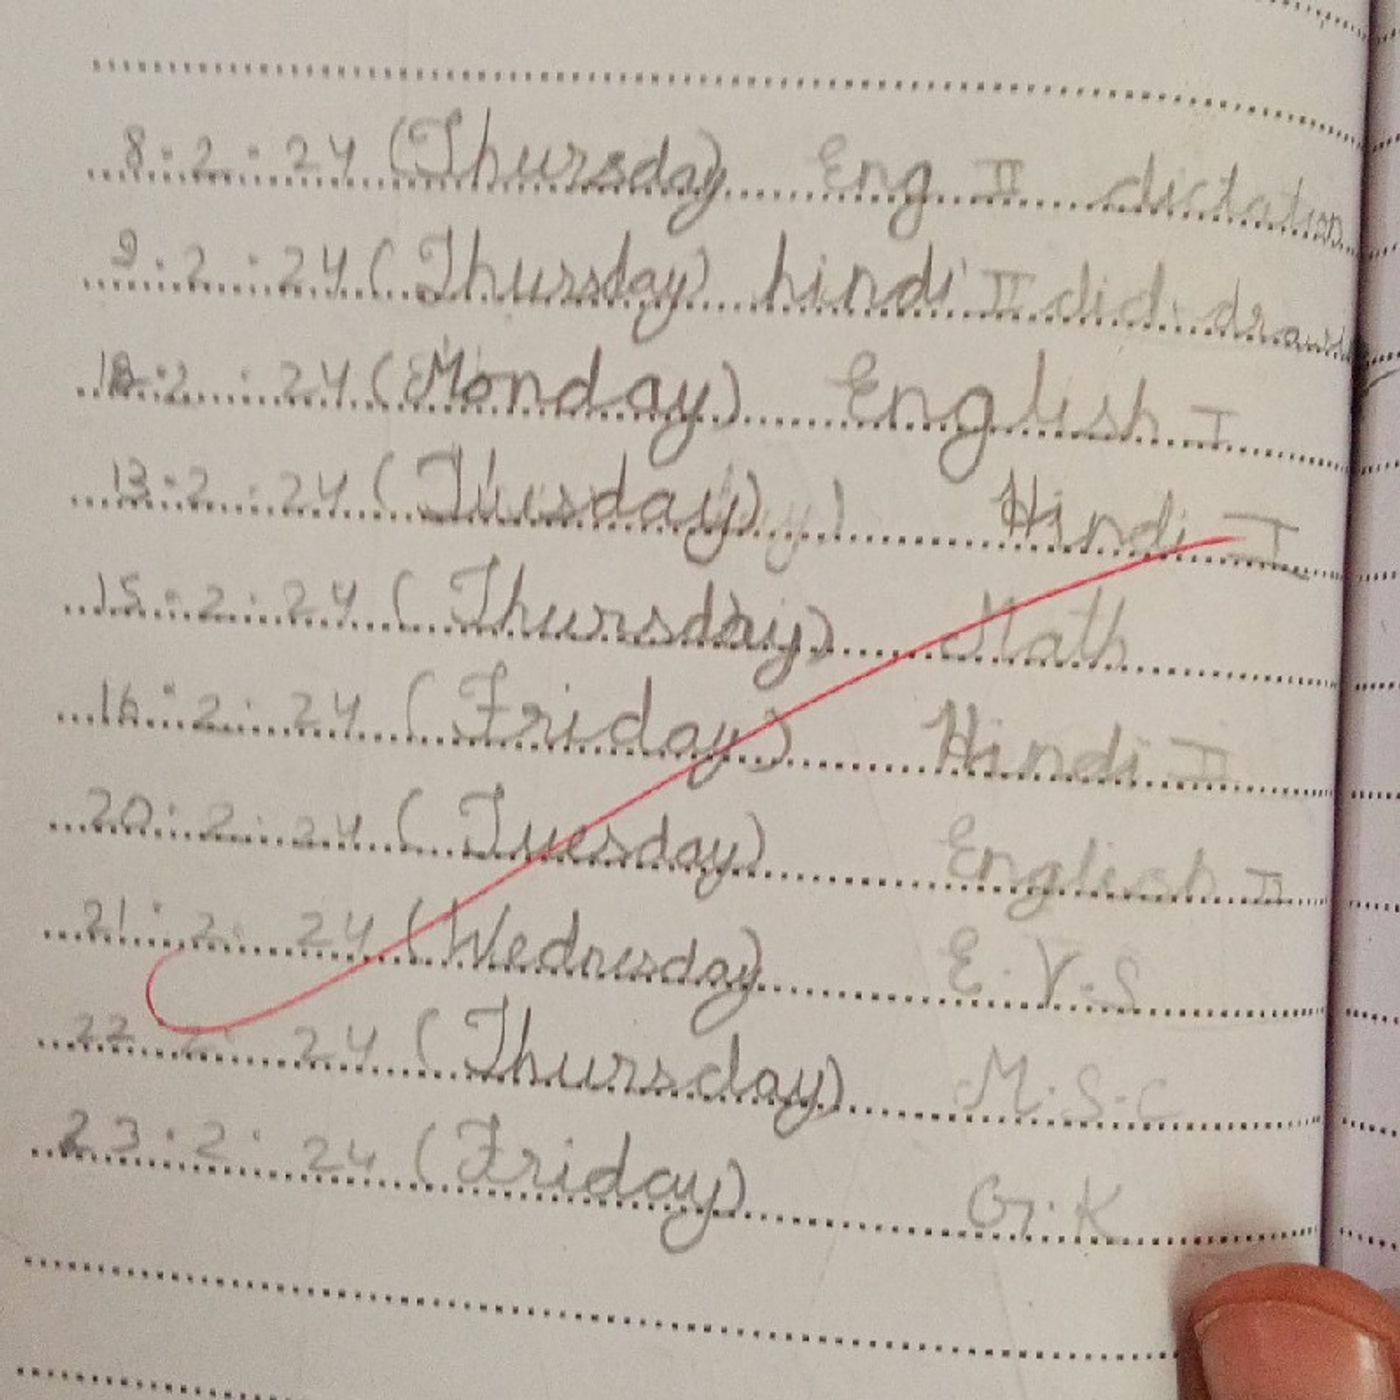 8.2.24 (Thursday) Eng II dictation
9.2.24 (Thursday) hindi II did. draw
2.24 (Monday) English I
13.2.24 (Tuesday) Hindi I
15.2.24 (Thursday) Math
16.2.24 (Friday) Hindi II
20.2.24 (Tuesday) English II
21.2.24 (Wednesday) E.V.S
22 2.24 (Thursday) M.S.C
23.2.24 (Friday) G.K